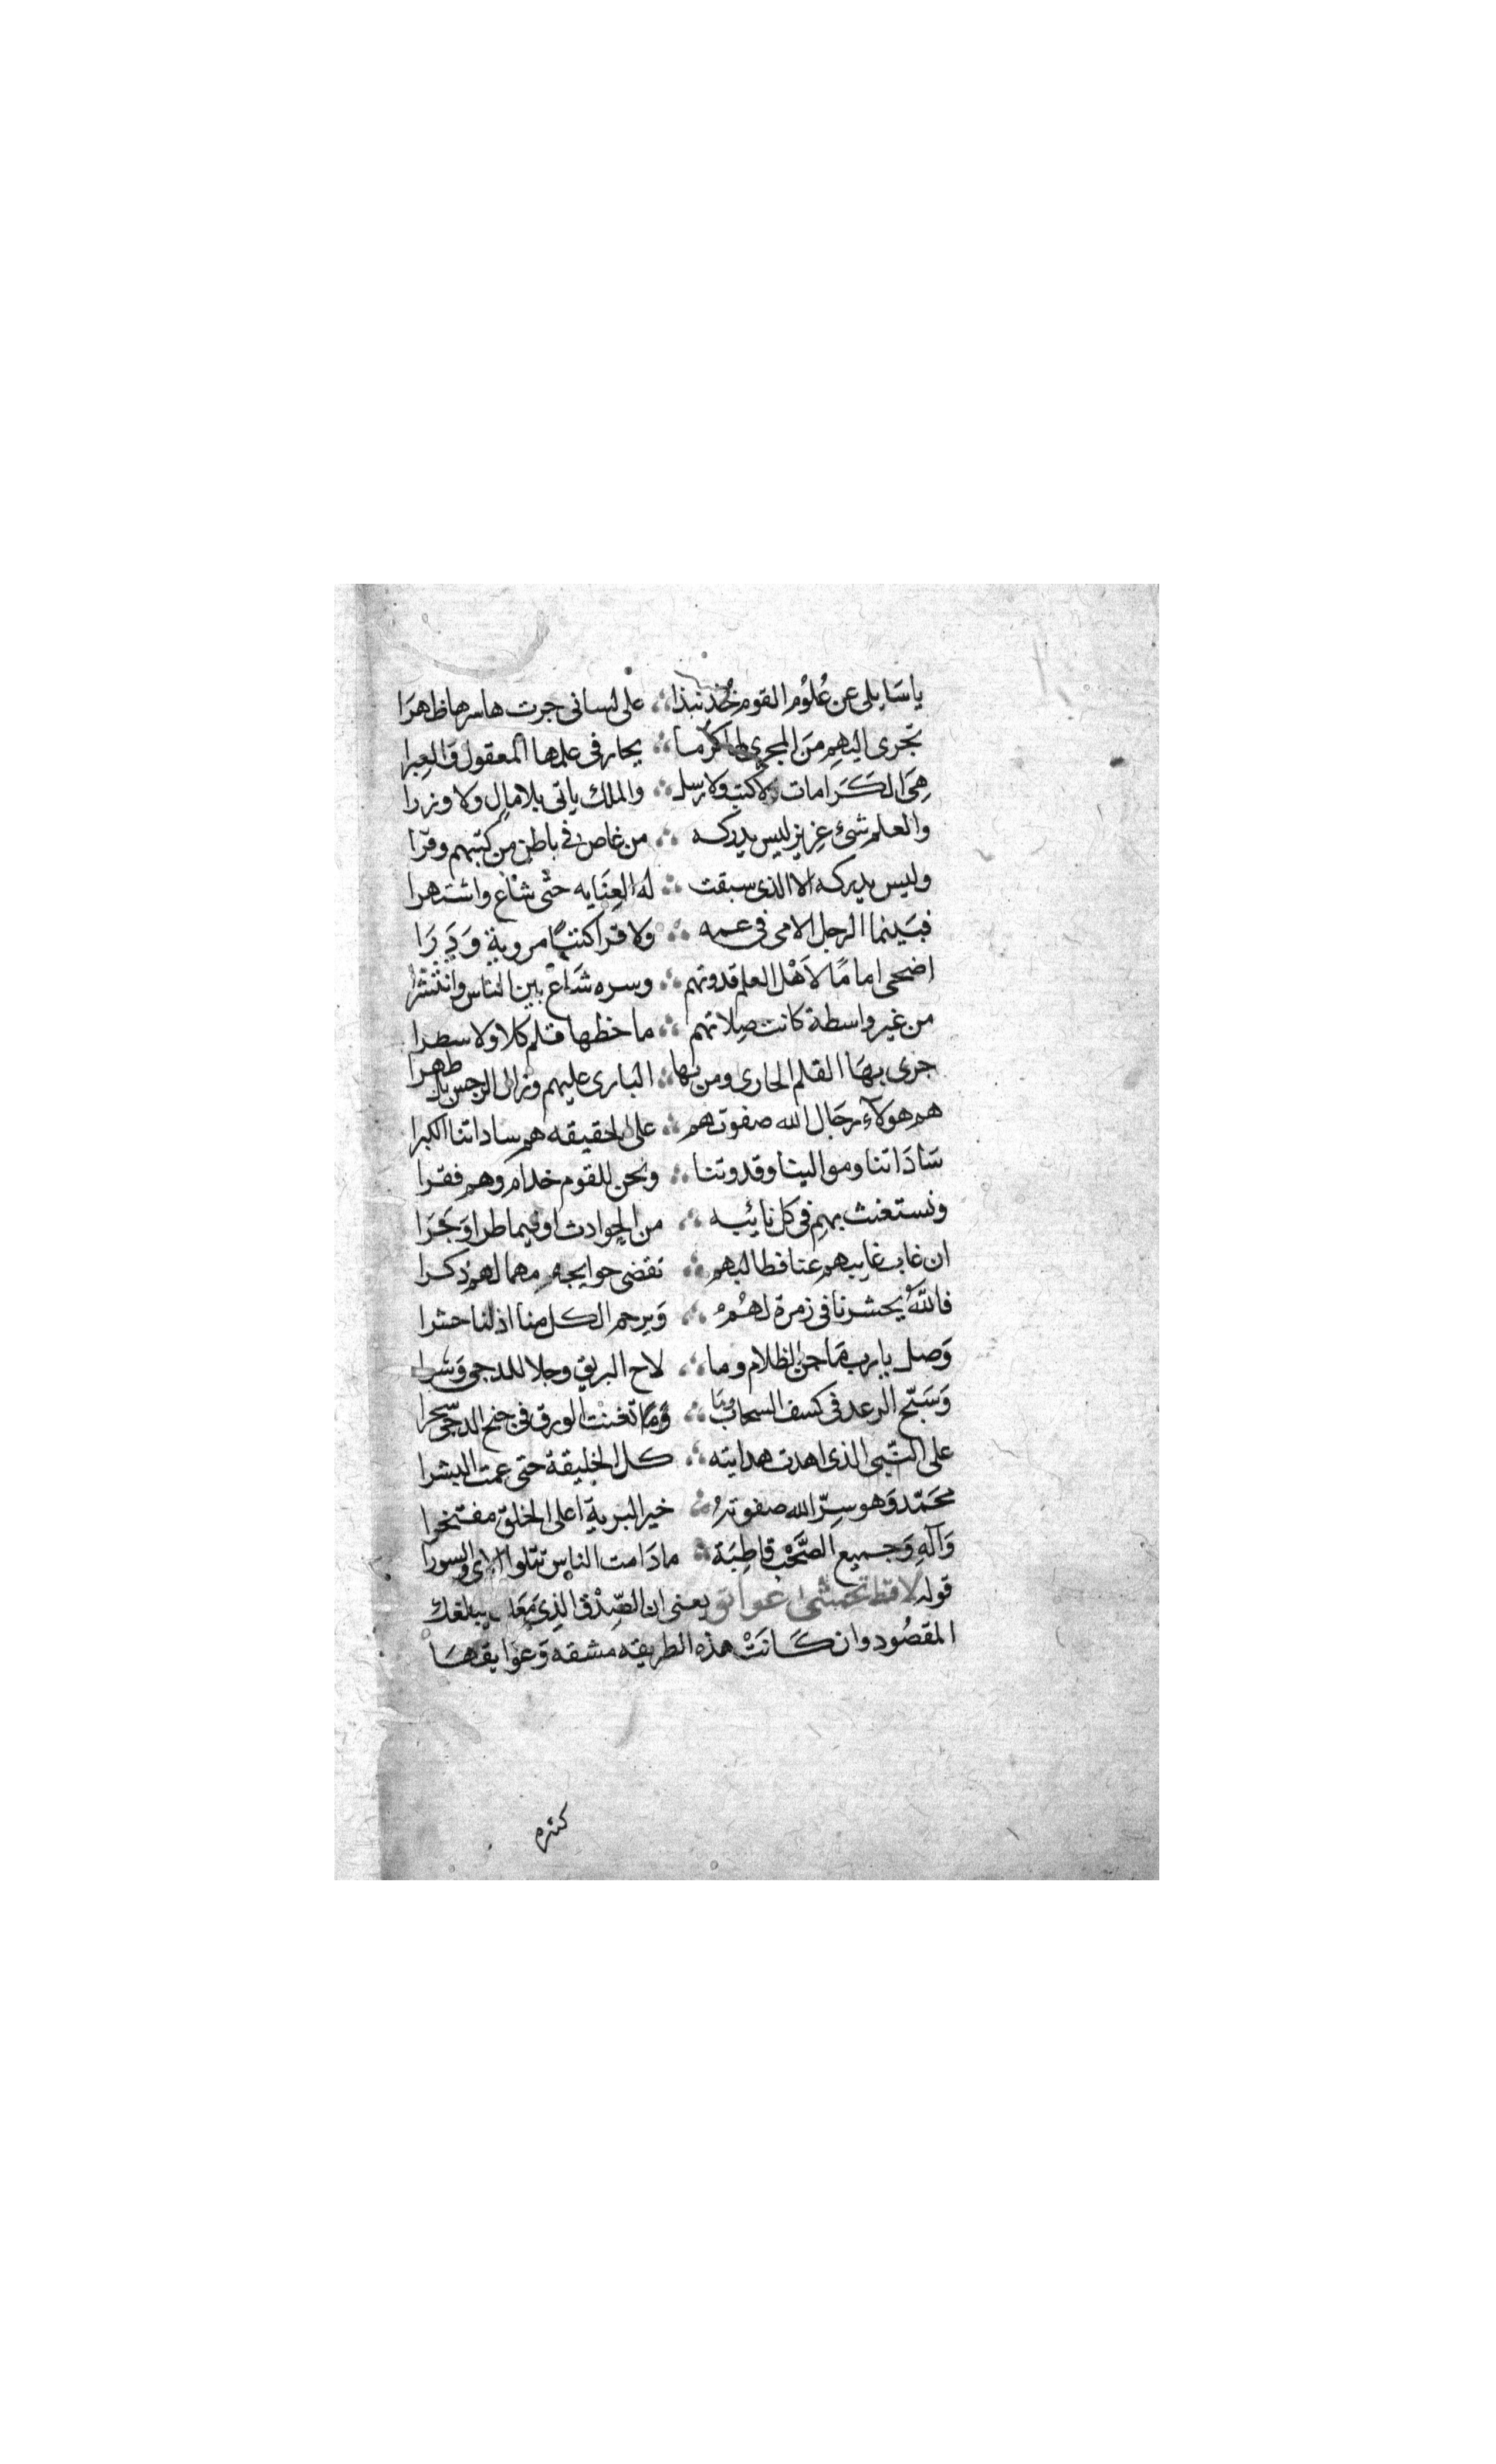 ياسَايلى عن عُلوُم القوم خُذ نبذا ∴ على لسانى جرت هاسرها ظهرَا
تجرى اليهم منَ المجرى لها كرما ∴ يحار فى علمها المعقول وَالعِبرا
هِىَ الكَرَامات لاكتب ولا رسل ∴ والملك ياتى بلا مالٍ ولا وزرا
والعلم شئ عزيز ليس يدركه ∴ من غاص فى باطن من كتبهم وقرا
وليس يدركه الا الذى سبقت ∴ له العِنَايه حتى شاع واشتهرا
فبَينما الرجل الامى فى عمه ∴ ولا قرا كتبًا مروية وَدَرَا
اضحى امامًا لاَهْل العلم قدوتهم ∴ وسره شَاع بين الناس وانتشرا
من غير واسطة كانت صِلاتهم ∴ ما خطها قلم كلا ولا سطرا
جرى بهَا القلم الجارى ومن بها ∴ البارى عليهم وزال الرجس بل طهرا
هم هولآء رجَال الله صفوتهم ∴ على الحقيقه هم ساداتنا الكبرا
سَادَاتنا وموالينا وقدوتنا ∴ ونحن للقوم خدام وهم فقرا
ونستغث بهم فى كل نائبه ∴ من الحوادث او فيما طرا وَجَرَا
ان غاب غايبهم عنا فطالبهم ∴ تقضى حوايجه مهما لهم ذكرا
فاللهُ يحشرنا فى زمرة لهُمُ ∴ وَيرحم الكل منا اذلنا حشرا
وَصل يارب مَا جن الظلام وما ∴ لاح البريق وجلا للدجى وَسَرا
وَسَبّح الرعد فى كسف السحاب وما ∴ تغنت الورق فى جنح الدجى سحرا
على النّبى الذى اهدت هدايته ∴ كل الخليقة حتى عمت البشرا
محَمّد وَهو سِرّ الله صفوتهُ ∴ خير البرية اعلى الخلق مفتخرا
وَآلهِ وَجميع الصَّحْبِ قاطِبَة ∴ مادَامت الناس تتلوا الاى والسورا
قوله لا قط تخشى عوائق يعنى ان الصِّدْق الذِى مَعَك يبلغك
المقصُود وان كَانَتْ هذه الطريقه مشقه وَعوَايقهَا
كثره